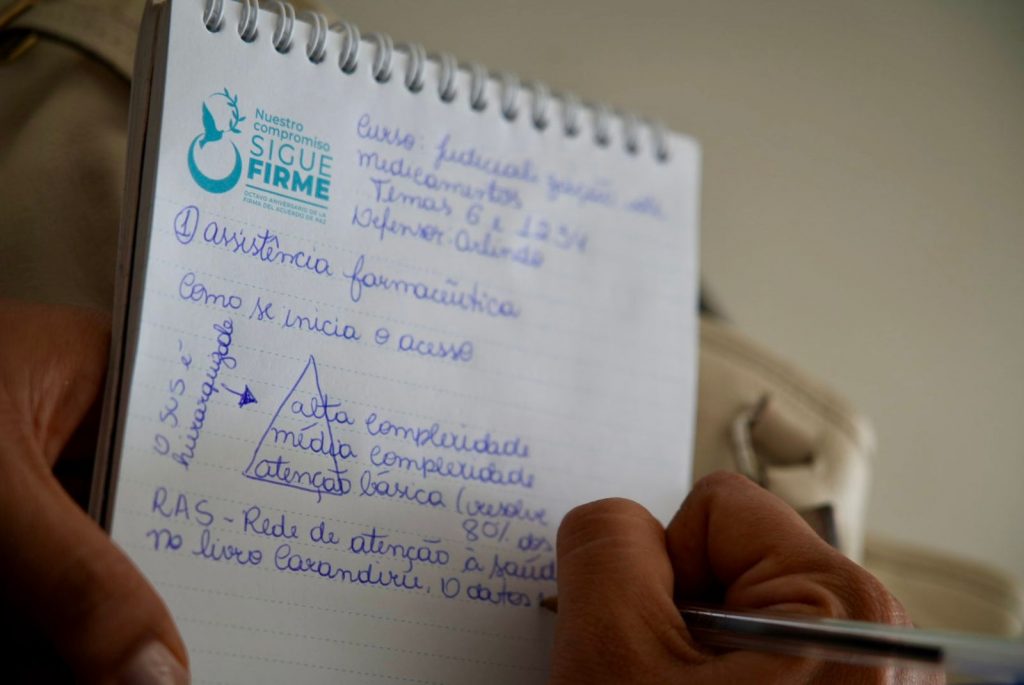 Nuestro
compromiso
SIGUE
FIRME
OCTAVO ANIVERSARIO DE LA
FIRMA DEL ACUERDO DE PAZ
Curso: Judicialização de
medicamentos
Temas 6 e 1234
Defensor: Arlindo
① assistência farmacêutica
Como se inicia o acesso
O SUS é
hierarquizado
alta complexidade
média complexidade
atenção básica (resolve
80% dos
RAS - Rede de atenção à saúd
no livro Carandiru, O